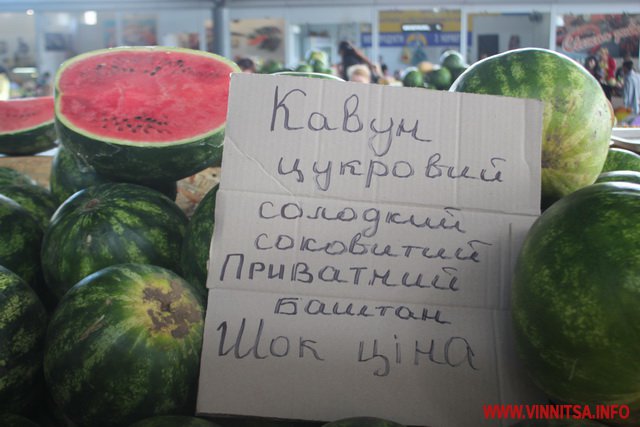 Кавун
цукровий
солодкий
соковитий
Приватний
баштан
Шок ціна
WWW.VINNITSA.INFO